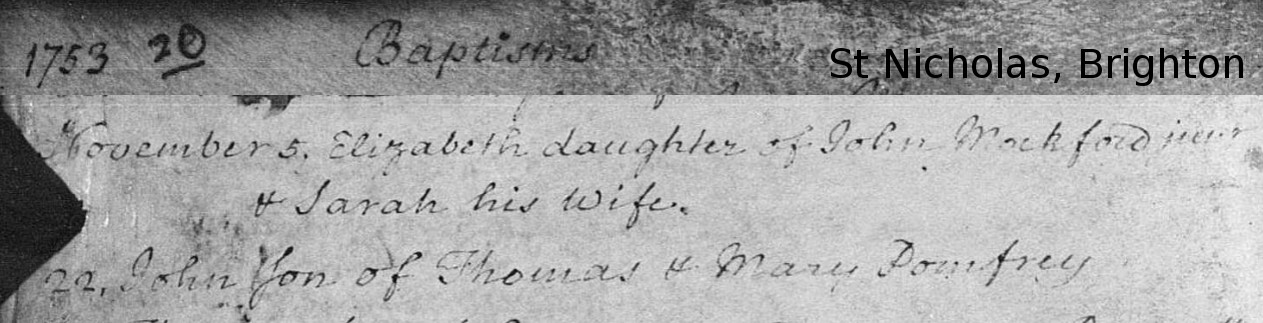 1753 20 Baptisms
St Nicholas, Brighton
November 5. Elizabeth daughter of John Mockford junr
& Sarah his Wife.
22. John Son of Thomas & Mary Pomfrey